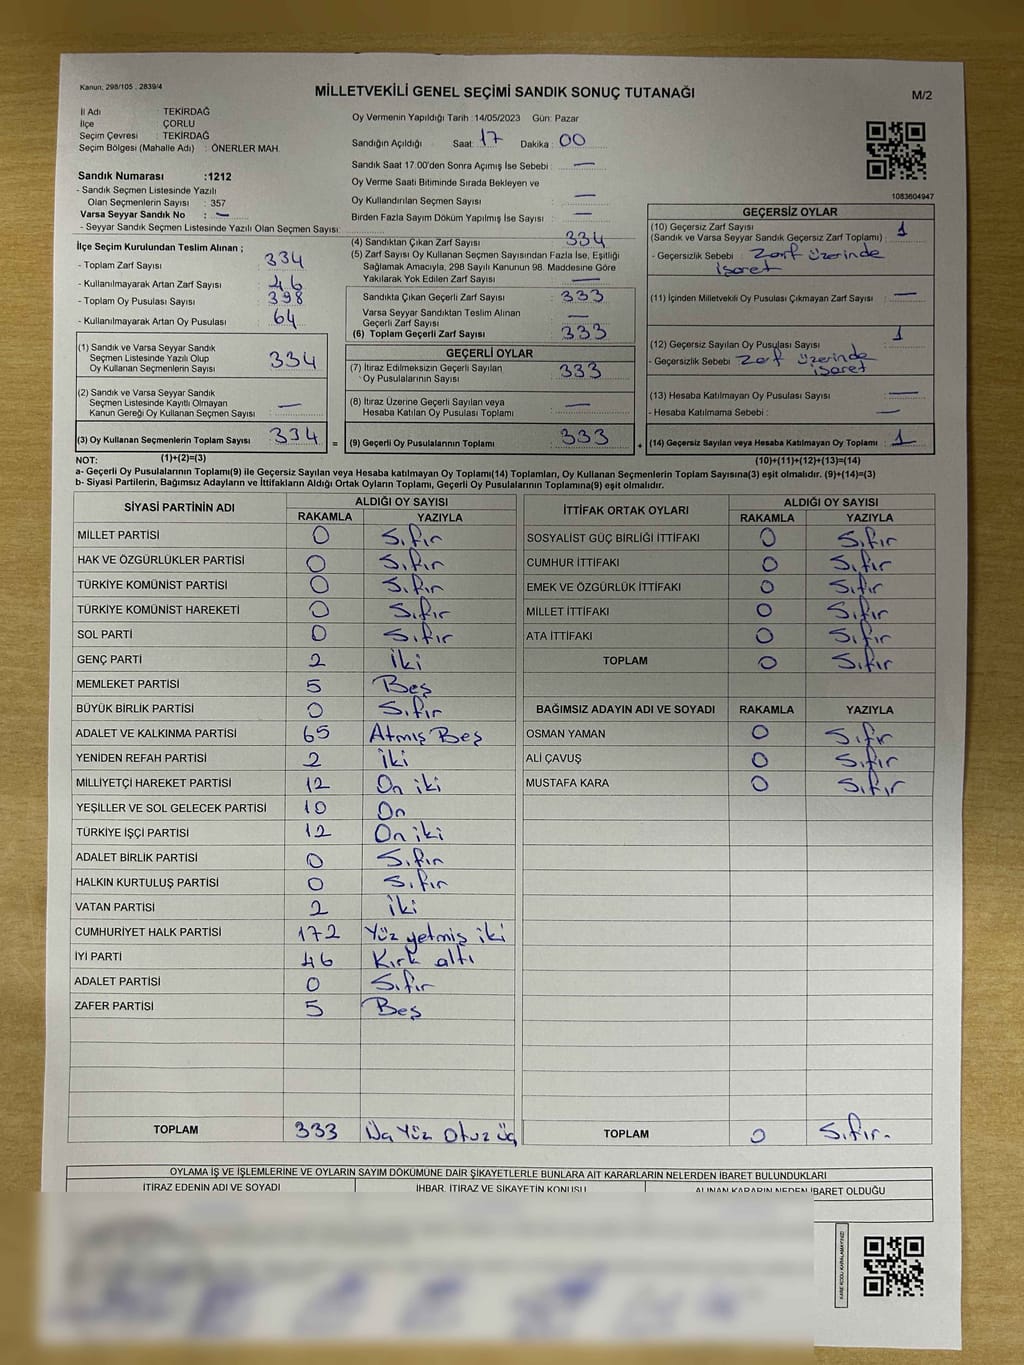 Kanun, 298/105 , 2839/4
MİLLETVEKİLİ GENEL SEÇİMİ SANDIK SONUÇ TUTANAĞI
M/2
İl Adı TEKİRDAĞ
İlçe ÇORLU
Seçim Çevresi : TEKİRDAĞ
Seçim Bölgesi (Mahalle Adı) : ÖNERLER MAH.
Oy Vermenin Yapıldığı Tarih :14/05/2023 Gün: Pazar
Sandığın Açıldığı Saat: 17 Dakika : 00
Sandık Saat 17:00'den Sonra Açımış İse Sebebi : —
Oy Verme Saati Bitiminde Sırada Bekleyen ve
Oy Kullandırılan Seçmen Sayısı : —
Birden Fazla Sayım Döküm Yapılmış İse Sayısı : —
1083604947
Sandık Numarası :1212
- Sandık Seçmen Listesinde Yazılı
Olan Seçmenlerin Sayısı : 357
Varsa Seyyar Sandık No : —
- Seyyar Sandık Seçmen Listesinde Yazılı Olan Seçmen Sayısı:
İlçe Seçim Kurulundan Teslim Alınan ;
- Toplam Zarf Sayısı : 334
- Kullanılmayarak Artan Zarf Sayısı : 46
- Toplam Oy Pusulası Sayısı : 398
- Kullanılmayarak Artan Oy Pusulası : 64
(1) Sandık ve Varsa Seyyar Sandık
Seçmen Listesinde Yazılı Olup
Oy Kullanan Seçmenlerin Sayısı : 334
(2) Sandık ve Varsa Seyyar Sandık
Seçmen Listesinde Kayıtlı Olmayan
Kanun Gereği Oy Kullanan Seçmen Sayısı : —
(3) Oy Kullanan Seçmenlerin Toplam Sayısı : 334 =
(1)+(2)=(3)
(4) Sandıktan Çıkan Zarf Sayısı : 334
(5) Zarf Sayısı Oy Kullanan Seçmen Sayısından Fazla İse, Eşitliği
Sağlamak Amacıyla, 298 Sayılı Kanunun 98. Maddesine Göre
Yakılarak Yok Edilen Zarf Sayısı : —
Sandıkta Çıkan Geçerli Zarf Sayısı : 333
Varsa Seyyar Sandıktan Teslim Alınan
Geçerli Zarf Sayısı : —
(6) Toplam Geçerli Zarf Sayısı : 333
GEÇERLİ OYLAR
(7) İtiraz Edilmeksizin Geçerli Sayılan
Oy Pusulalarının Sayısı : 333
(8) İtiraz Üzerine Geçerli Sayılan veya
Hesaba Katılan Oy Pusulası Toplamı : —
(9) Geçerli Oy Pusulalarının Toplamı : 333 +
GEÇERSİZ OYLAR
(10) Geçersiz Zarf Sayısı
(Sandık ve Varsa Seyyar Sandık Geçersiz Zarf Toplamı) : 1
- Geçersizlik Sebebi : Zarf üzerinde
işaret
(11) İçinden Milletvekili Oy Pusulası Çıkmayan Zarf Sayısı : —
(12) Geçersiz Sayılan Oy Pusulası Sayısı : 1
- Geçersizlik Sebebi : Zarf üzerinde
işaret
(13) Hesaba Katılmayan Oy Pusulası Sayısı : —
- Hesaba Katılmama Sebebi : —
(14) Geçersiz Sayılan veya Hesaba Katılmayan Oy Toplamı : 1
(10)+(11)+(12)+(13)=(14)
NOT:
a- Geçerli Oy Pusulalarının Toplamı(9) ile Geçersiz Sayılan veya Hesaba katılmayan Oy Toplamı(14) Toplamları, Oy Kullanan Seçmenlerin Toplam Sayısına(3) eşit olmalıdır. (9)+(14)=(3)
b- Siyasi Partilerin, Bağımsız Adayların ve İttifakların Aldığı Ortak Oyların Toplamı, Geçerli Oy Pusulalarının Toplamına(9) eşit olmalıdır.
SİYASİ PARTİNİN ADI ALDIĞI OY SAYISI
RAKAMLA YAZIYLA
MİLLET PARTİSİ 0 Sıfır
HAK VE ÖZGÜRLÜKLER PARTİSİ 0 Sıfır
TÜRKİYE KOMÜNİST PARTİSİ 0 Sıfır
TÜRKİYE KOMÜNİST HAREKETİ 0 Sıfır
SOL PARTİ 0 Sıfır
GENÇ PARTİ 2 İki
MEMLEKET PARTİSİ 5 Beş
BÜYÜK BİRLİK PARTİSİ 0 Sıfır
ADALET VE KALKINMA PARTİSİ 65 Atmış Beş
YENİDEN REFAH PARTİSİ 2 İki
MİLLİYETÇİ HAREKET PARTİSİ 12 On iki
YEŞİLLER VE SOL GELECEK PARTİSİ 10 On
TÜRKİYE İŞÇİ PARTİSİ 12 On iki
ADALET BİRLİK PARTİSİ 0 Sıfır
HALKIN KURTULUŞ PARTİSİ 0 Sıfır
VATAN PARTİSİ 2 İki
CUMHURİYET HALK PARTİSİ 172 Yüz yetmiş iki
İYİ PARTİ 46 Kırk altı
ADALET PARTİSİ 0 Sıfır
ZAFER PARTİSİ 5 Beş
TOPLAM 333 Üç Yüz Otuz üç
İTTİFAK ORTAK OYLARI ALDIĞI OY SAYISI
RAKAMLA YAZIYLA
SOSYALİST GÜÇ BİRLİĞİ İTTİFAKI 0 Sıfır
CUMHUR İTTİFAKI 0 Sıfır
EMEK VE ÖZGÜRLÜK İTTİFAKI 0 Sıfır
MİLLET İTTİFAKI 0 Sıfır
ATA İTTİFAKI 0 Sıfır
TOPLAM 0 Sıfır
BAĞIMSIZ ADAYIN ADI VE SOYADI RAKAMLA YAZIYLA
OSMAN YAMAN 0 Sıfır
ALİ ÇAVUŞ 0 Sıfır
MUSTAFA KARA 0 Sıfır
TOPLAM 0 Sıfır.
OYLAMA İŞ VE İŞLEMLERİNE VE OYLARIN SAYIM DÖKÜMÜNE DAİR ŞİKAYETLERLE BUNLARA AİT KARARLARIN NELERDEN İBARET BULUNDUKLARI
İTİRAZ EDENİN ADI VE SOYADI İHBAR, İTİRAZ VE ŞİKAYETİN KONUSU ALINAN KARARIN NEDEN İBARET OLDUĞU
KARE KODU KARALAMAYINIZ!